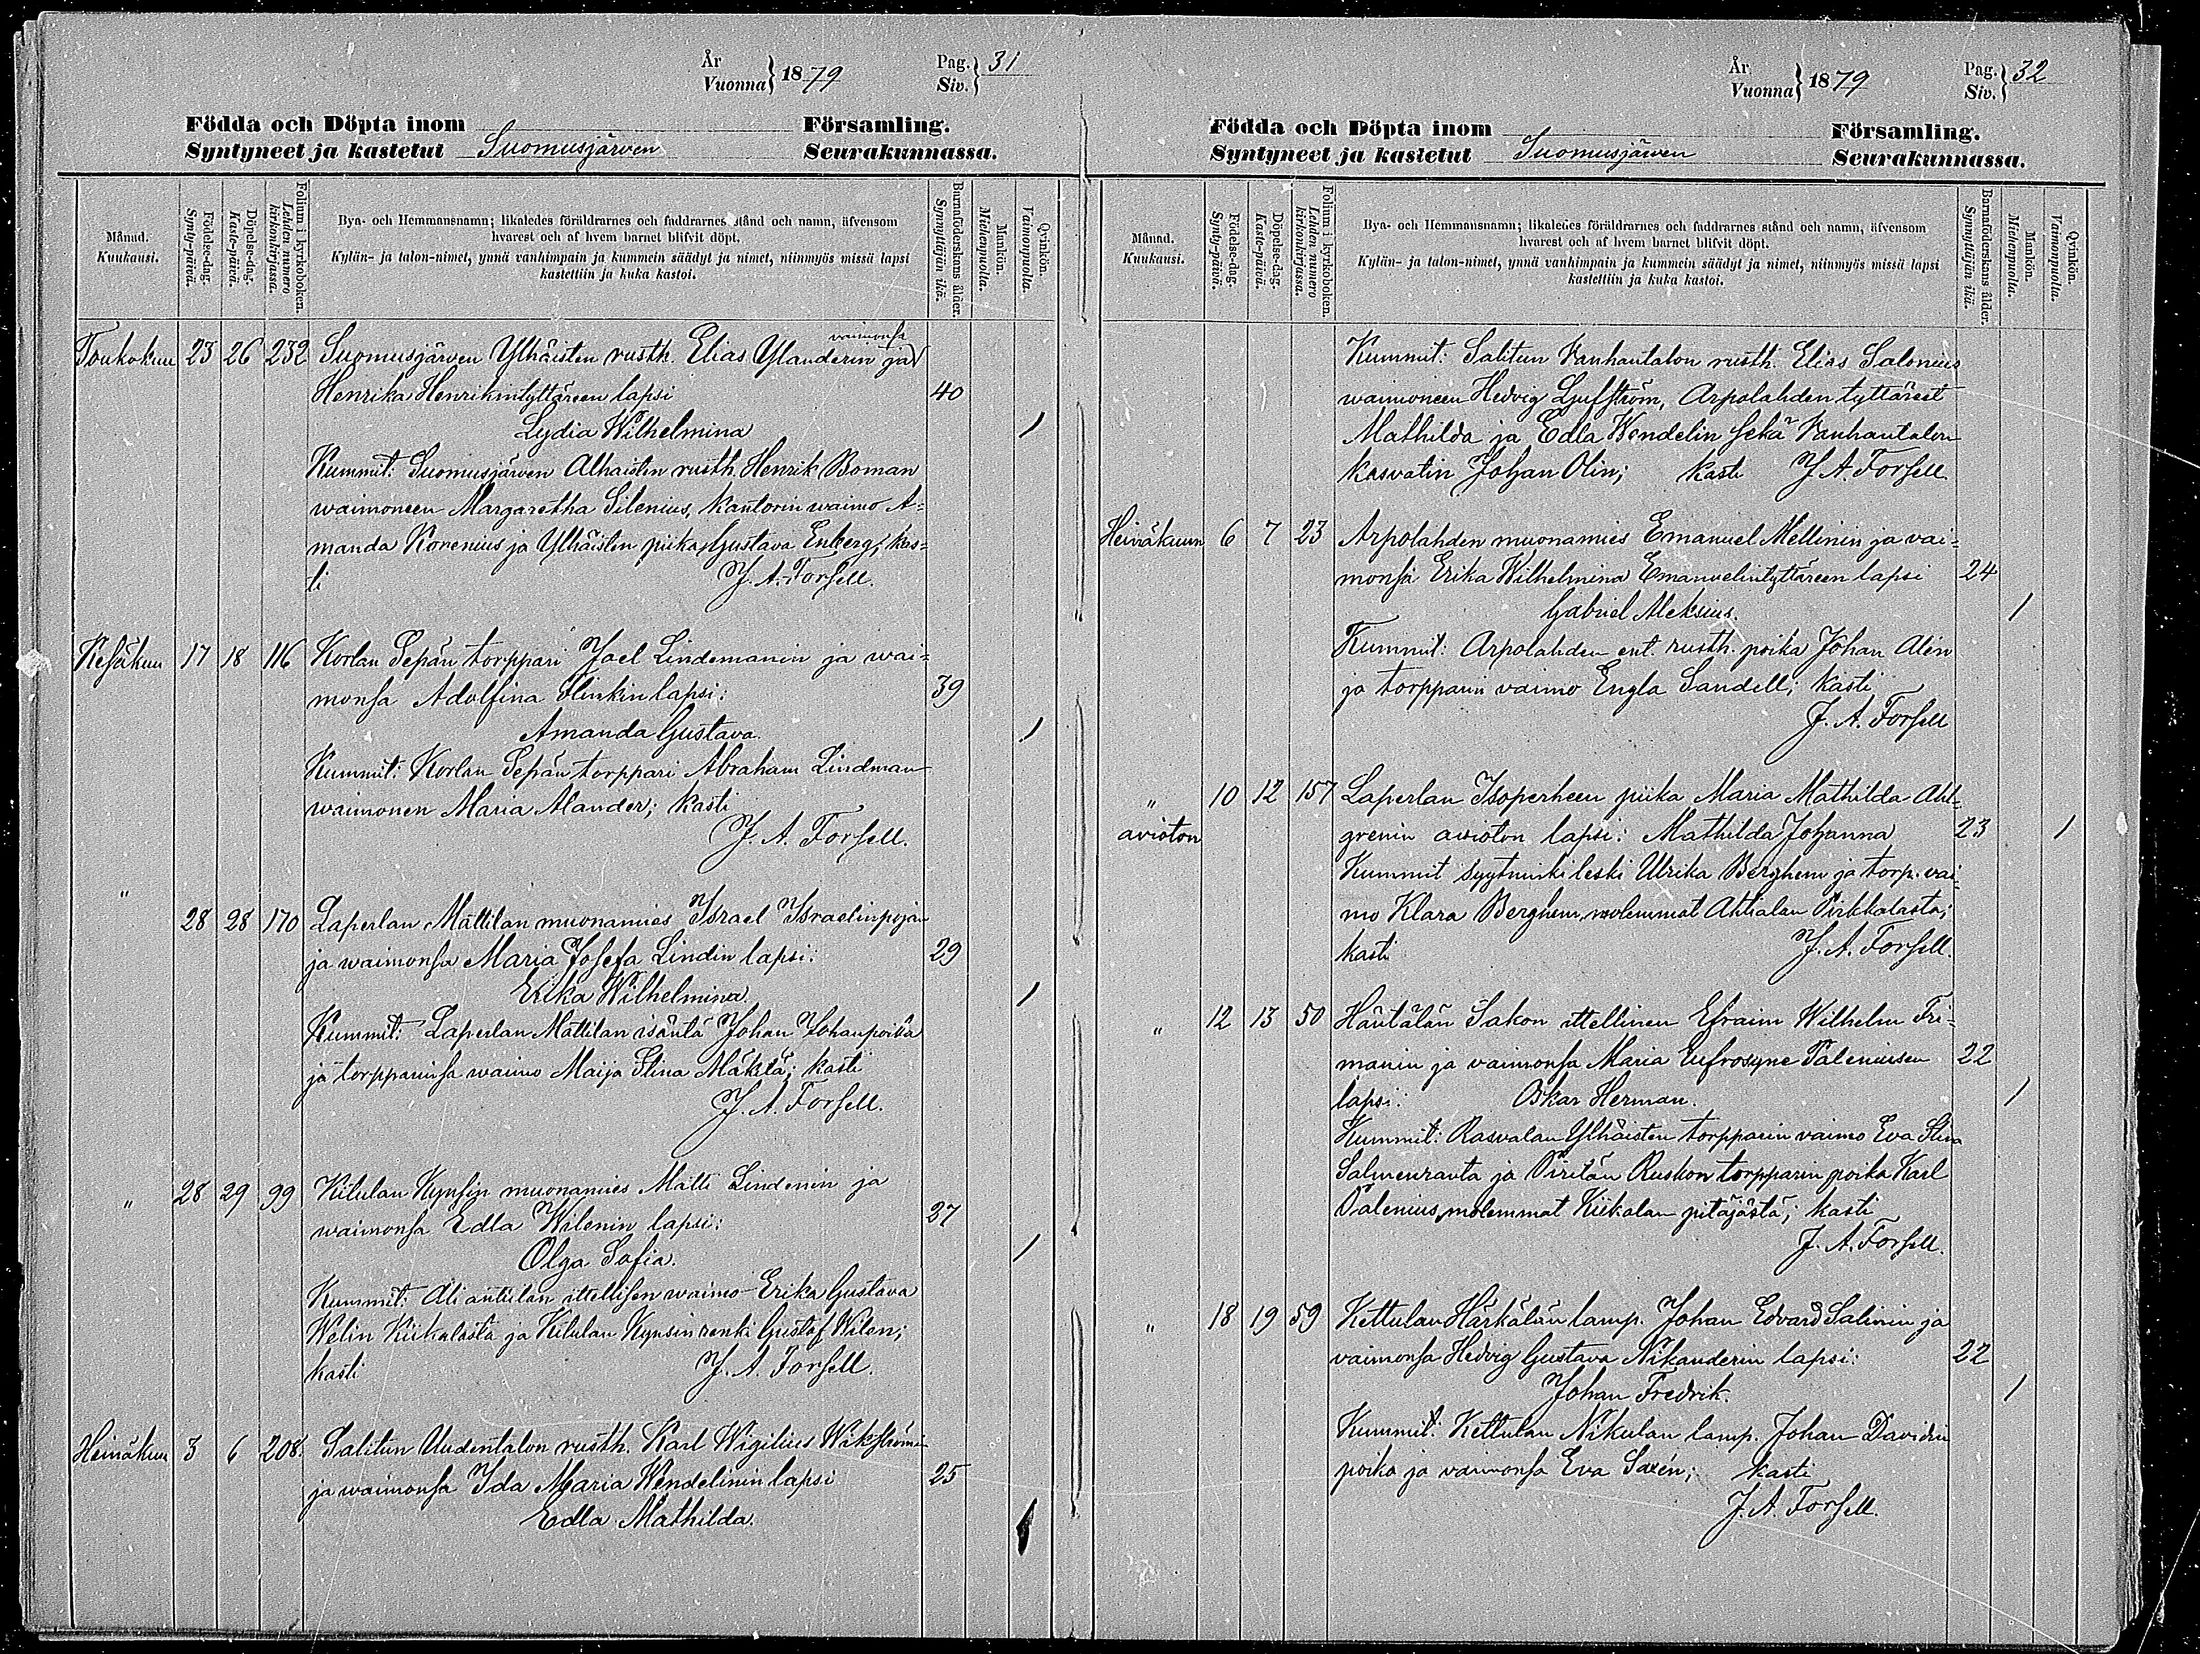 År
Vuonna } 1879
Pag.
Siv. } 31
Födda och Döpta inom Församling.
Syntyneet ja kastetut Suomusjärven Seurakunnassa.
Månad.
Kuukausi.
Födelse-dag.
Synty-päivä.
Döpelse-dag.
Kaste-päivä.
Folium i kyrkoboken.
Lehden numero
kirkonkirjassa.
Bya- och Hemmansnamn; likaledes föräldrarnes och faddrarnes stånd och namn, äfvensom
hvarest och af hvem barnet blifvit döpt.
Kylän- ja talon-nimet, ynnä vanhimpain ja kummein säädyt ja nimet, niinmyös missä lapsi
kastettiin ja kuka kastoi.
Barnaföderskans ålder.
Synnyttäjän ikä.
Mankön.
Miehenpuolia.
Qvinkön.
Vaimonpuolia.
vaimonsa
Toukokuu 23 26 232 Suomusjärven Ylhäisten rusth. Elias Ylanderin ja
Henrika Henrikintyttäreen lapsi 40
Lydia Wilhelmina 1
Kummit: Suomusjärven Alhaisten rusth. Henrik Boman
waimoneen Margaretha Silenius, kanttorin waimo A-
manda Korenius ja Ylhäisten piika Gustava Enberg; kas-
ti J. A. Forsell.
Kesäkuu 17 18 116 Korlan Sepän torppari Joel Lindemanin ja wai-
monsa Adolfina Flinkin lapsi: 39
Amanda Gustava. 1
Kummit: Korlan Sepän torppari Abraham Lindman
waimonen Maria Alander; kasti
J. A. Forsell.
" 28 28 170 Laperlan Mattilan muonamies Israel Israelinpojan
ja waimonsa Maria Josefa Lindin lapsi: 29
Erika Wilhelmina. 1
Kummit: Laperlan Mattilan isäntä Johan Johanpoika
ja torpparinsa waimo Maija Stina Mäkilä; kasti
J. A. Forsell.
" 28 29 99 Kilulan Kynsin muonamies Matti Lindenin ja
waimonsa Edla Wilenin lapsi: 27
Olga Sofia. 1
Kummit: itellisen waimo Erika Gustava
Welin Kiikalasta ja Kilulan Kynsin renki Gustaf Wilen;
kasti J. A. Forsell.
Heinäkuu 3 6 208. Salitun Uudentalon rusth. Karl Wigilius Wikströmin
ja waimonsa Ida Maria Wendelinin lapsi 25
Edla Mathilda. 1
År
Vuonna } 1879
Pag.
Siv. } 32
Födda och Döpta inom Församling.
Syntyneet ja kastetut Suomusjärven Seurakunnassa.
Månad.
Kuukausi.
Födelse-dag.
Synty-päivä.
Döpelse-dag.
Kaste-päivä.
Folium i kyrkoboken.
Lehden numero
kirkonkirjassa.
Bya- och Hemmansnamn; likaledes föräldrarnes och faddrarnes stånd och namn, äfvensom
hvarest och af hvem barnet blifvit döpt.
Kylän- ja talon-nimet, ynnä vanhimpain ja kummein säädyt ja nimet, niinmyös missä lapsi
kastettiin ja kuka kastoi.
Barnaföderskans ålder.
Synnyttäjän ikä.
Mankön.
Miehenpuolia.
Qvinkön.
Vaimonpuolia.
Kummit: Salitun Vanhantalon rusth. Elias Salonius
waimoneen Hedvig Ljufström, Arpolahden tyttäreet
Mathilda ja Edla Wendelin sekä Vanhantalon
kasvatin Johan Olin; kasti J. A. Forsell.
Heinäkuun 6 7 23 Arpolahden muonamies Emanuel Mellinin ja vai-
monsa Erika Wilhelmina Emanuelintyttäreen lapsi 24
Gabriel Aleksius. 1
Kummit: Arpolahden ent. rusth. poika Johan Alén
ja torpparin vaimo Engla Sandell; kasti
J. A. Forsell
" 10 12 157 Laperlan Isoperheen piika Maria Mathilda Ahl-
avioton grenin avioton lapsi: Mathilda Johanna 23 1
Kummit syytinki leski Ulrika Berghem ja torp. vai-
mo Klara Berghem, molemmat Ahtialan Pirkkalasta;
kasti J. A. Forsell.
" 12 13 50 Häntälän Sakon ittellinen Efraim Wilhelm Fri-
manin ja vaimonsa Maria Eufrosyne Paleniusen 22
lapsi: Oskar Herman. 1
Kummit: Rasvalan Ylhäisten torpparin vaimo Eva Stina
Salmenranta ja Piritän Ruskon torpparin poika Karl
Palenius, molemmat Kiikalan pitäjästä; kasti
J. A. Forsell.
" 18 19 59 Kettulan Härkälän lamp. Johan Edvard Salinin ja
vaimonsa Hedvig Gustava Nikanderin lapsi: 22
Johan Fredrik. 1
Kummit: Kettulan Nikulan lamp. Johan Davidin
poika ja vaimonsa Eva Saxén; kasti
J. A. Forsell.